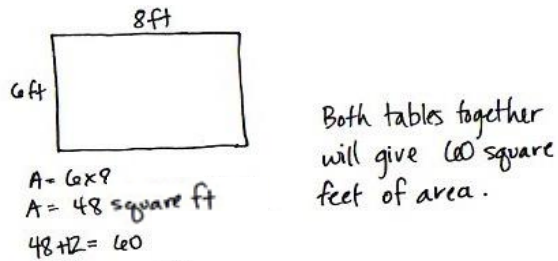 8ft
6ft
A= 6x8
A= 48 square ft
48+12= 60
Both tables together
will give 60 square
feet of area.